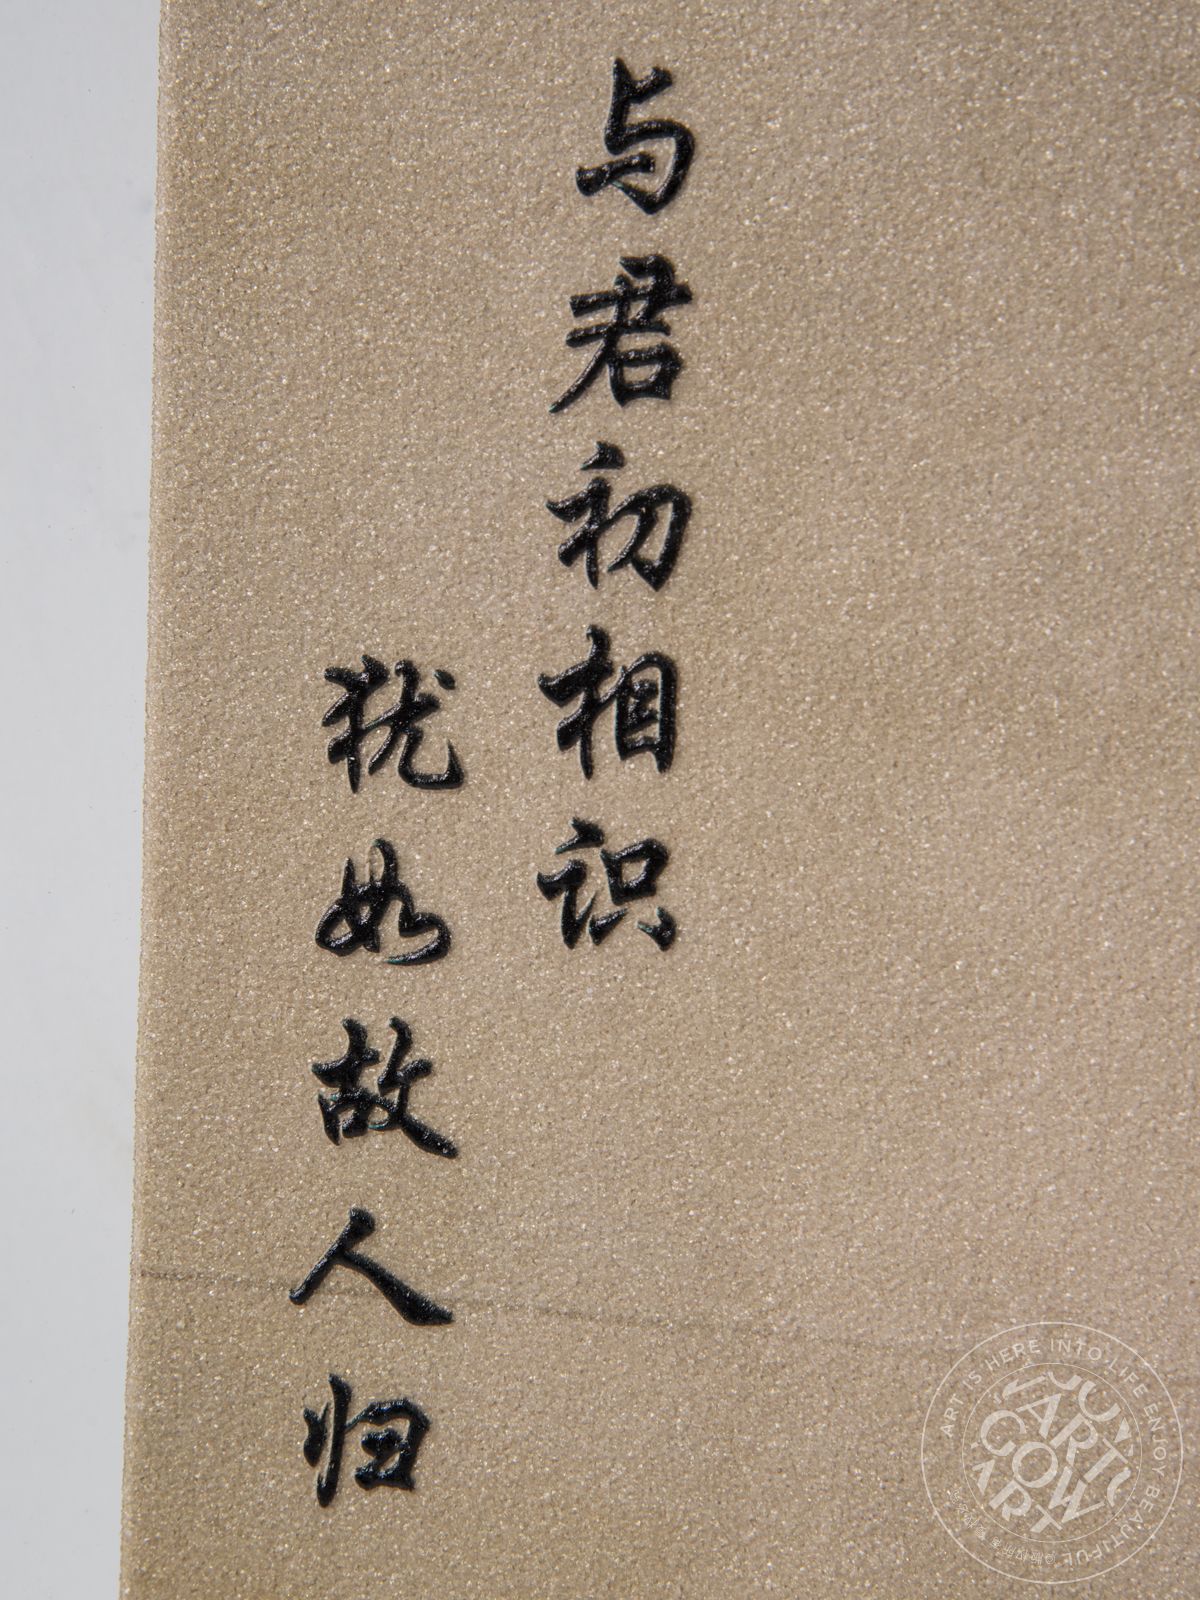 与君初相识
犹如故人归
ART IS HERE INTO LIFE ENJOY BEAUTIFUL